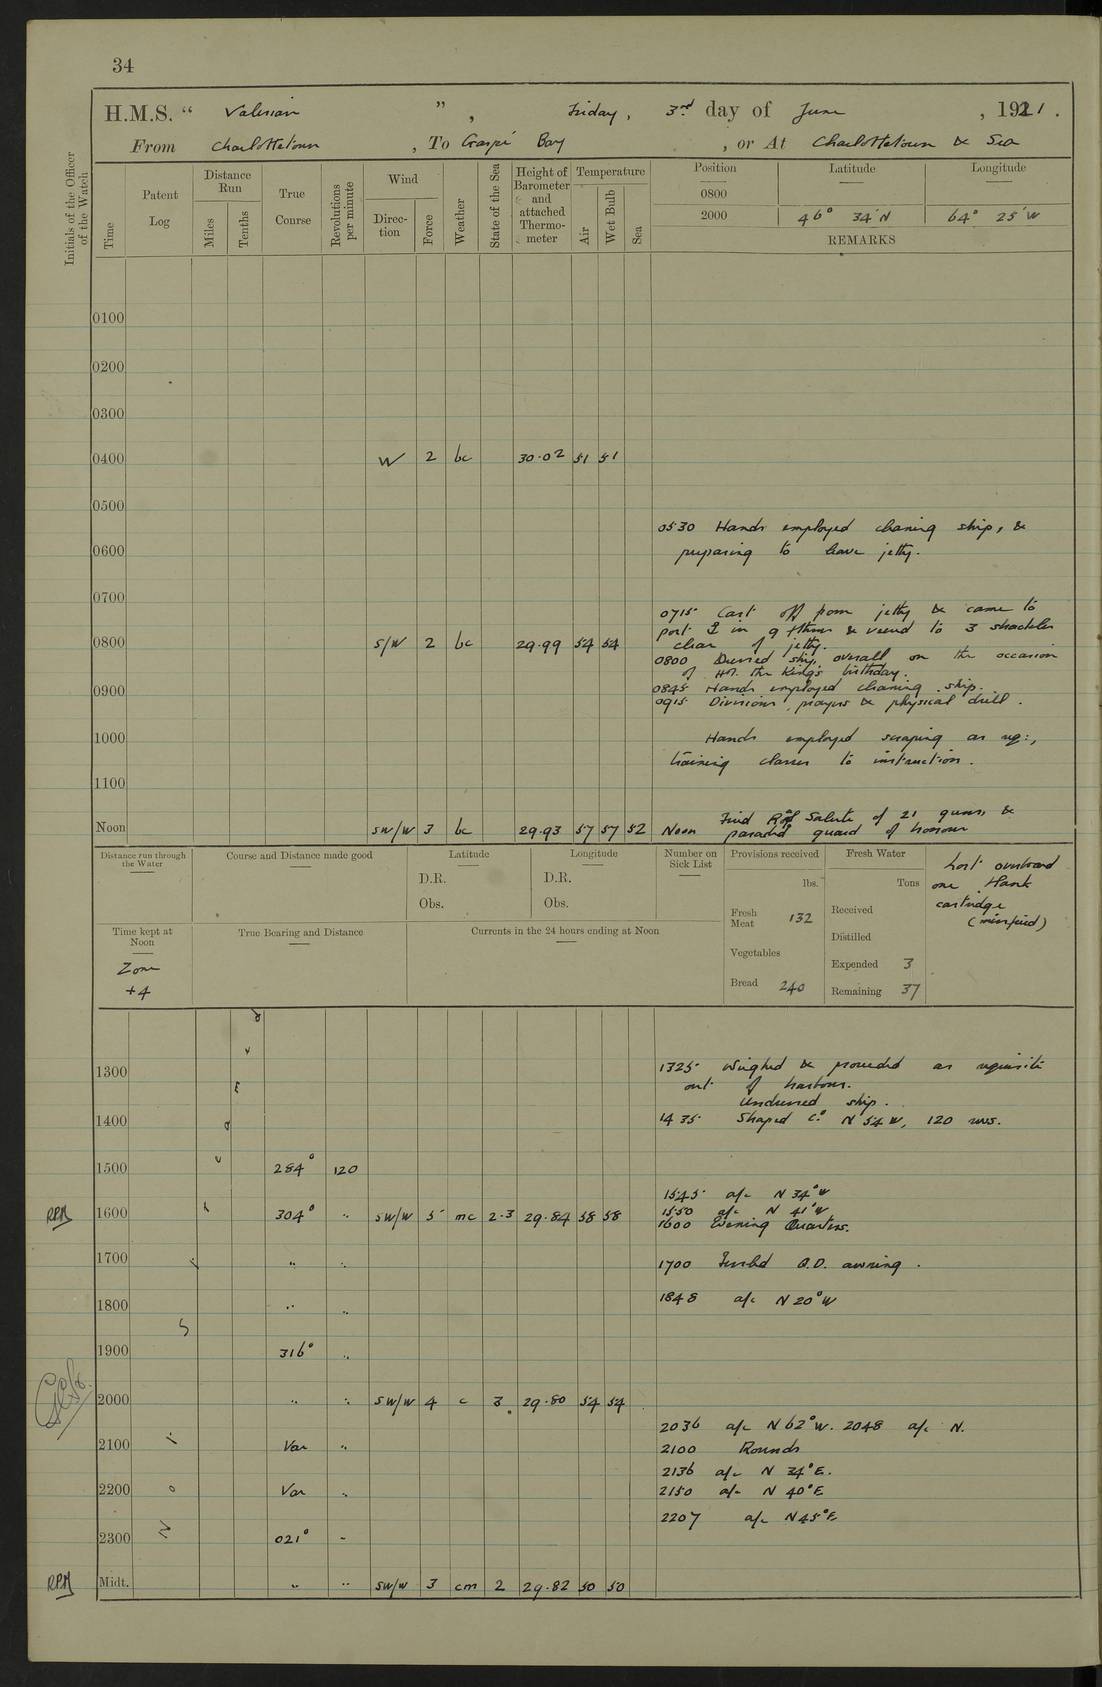 34
H.M.S. “ Valerian ” , Friday, 3rd day of June , 1921.
From Charlottetown , To Gaspé Bay , or At Charlottetown & Sea
Initials of the Officer of the Watch
Time
Patent Log
Distance Run
Miles
Tenths
True Course
Revolutions per minute
Wind
Direction
Force
Weather
State of the Sea
Height of Barometer and attached Thermometer
Temperature
Air
Wet Bulb
Sea
Position Latitude Longitude
0800
2000 46° 34' N 64° 25' W
REMARKS
0100
0200
0300
0400 W 2 bc 30.02 51 51
0500
0530 Hands employed cleaning ship, &
0600 preparing to leave jetty.
0700
0715 Cast off from jetty & came to
port in 9 fthms & veered to 3 shackles
0800 S/W 2 bc 29.99 54 54 clear of jetty.
0800 Dressed ship overall on the occasion
of H.M. the King's birthday.
0900 0845 Hands employed cleaning ship.
0915 Divisions, prayers & physical drill.
1000 Hands employed scraping as req:,
training classes to instruction.
1100
Fired Royal Salute of 21 guns, &
Noon SW/W 3 bc 29.93 57 57 52 Noon paraded guard of honour
Distance run through the Water
Course and Distance made good
Latitude
D.R.
Obs.
Longitude
D.R.
Obs.
Number on Sick List
Provisions received
lbs.
Fresh Meat 132
Vegetables
Bread 240
Fresh Water
Tons
Received
Distilled
Expended 3
Remaining 37
Lost overboard
one blank
cartridge
(misfired)
Time kept at Noon
Zone
+4
True Bearing and Distance
Currents in the 24 hours ending at Noon
1300 1325 Weighed & proceeded as requisite
out of harbour.
Undressed ship.
1400 1435 Shaped Co. N 54 W, 120 revs.
1500 284° 120
1545 a/c N 34° W
1550 a/c N 41° W
RPM 1600 304° " SW/W 5 mc 2.3 29.84 58 58 1600 Evening Quarters.
1700 " " 1700 Furled Q.D. awning.
1800 " " 1848 a/c N 20° W
1900 316° "
2000 " " SW/W 4 c 3 29.80 54 54
2036 a/c N 62° W. 2048 a/c N.
2100 Var " 2100 Rounds
2136 a/c N 34° E.
2200 Var " 2150 a/c N 40° E
2207 a/c N 45° E
2300 021° "
RPM Midt. " " SW/W 3 cm 2 29.82 50 50